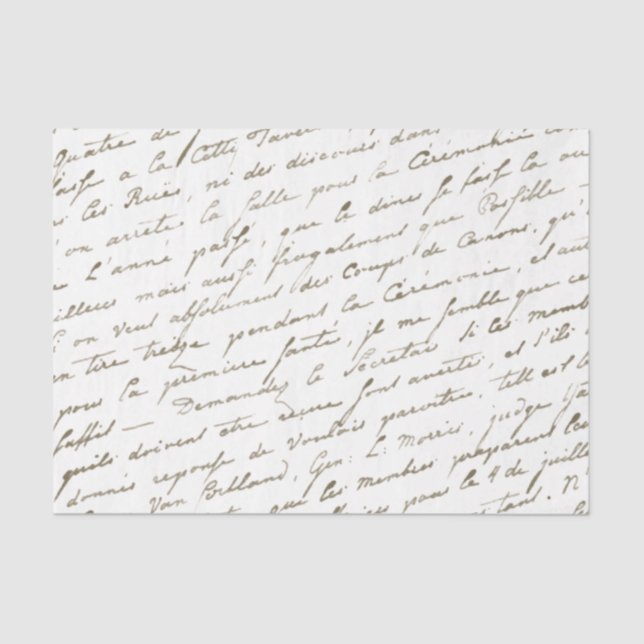 Quatre de
fasse a la Citty Taver
les Rues, ni des discours dans
on arrete la salle pour la Cérémonie
L'année passé, que le diner se fasse la ou
ailleurs mais aussi frugalement que Possible —
on veut absolument des Coups de Canons, qu'
en tire treize pendant la Cérémonie, et aut
pour la première santé, il me semble que ce
suffit — Demandez le Secretar si les memb
quils doivent etre reçue sont averti, et s'ils
donnés reponse de voulais paroitre, tell est le
Van Cortland, Gen: L: Morris, judge
que les membres preparent leu
pour le 4 de juille
tant. N